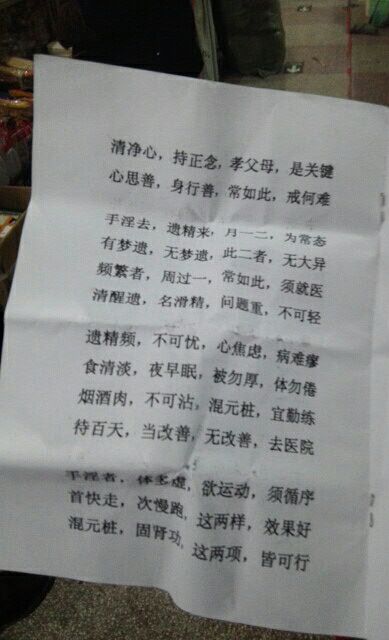 清净心，持正念，孝父母，是关键
心思善，身行善，常如此，戒何难
手淫去，遗精来，月一二，为常态
有梦遗，无梦遗，此二者，无大异
频繁者，周过一，常如此，须就医
清醒遗，名滑精，问题重，不可轻
遗精频，不可忧，心焦虑，病难瘳
食清淡，夜早眠，被勿厚，体勿倦
烟酒肉，不可沾，混元桩，宜勤练
待百天，当改善，无改善，去医院
手淫者，体多虚，欲运动，须循序
首快走，次慢跑，这两样，效果好
混元桩，固肾功，这两项，皆可行